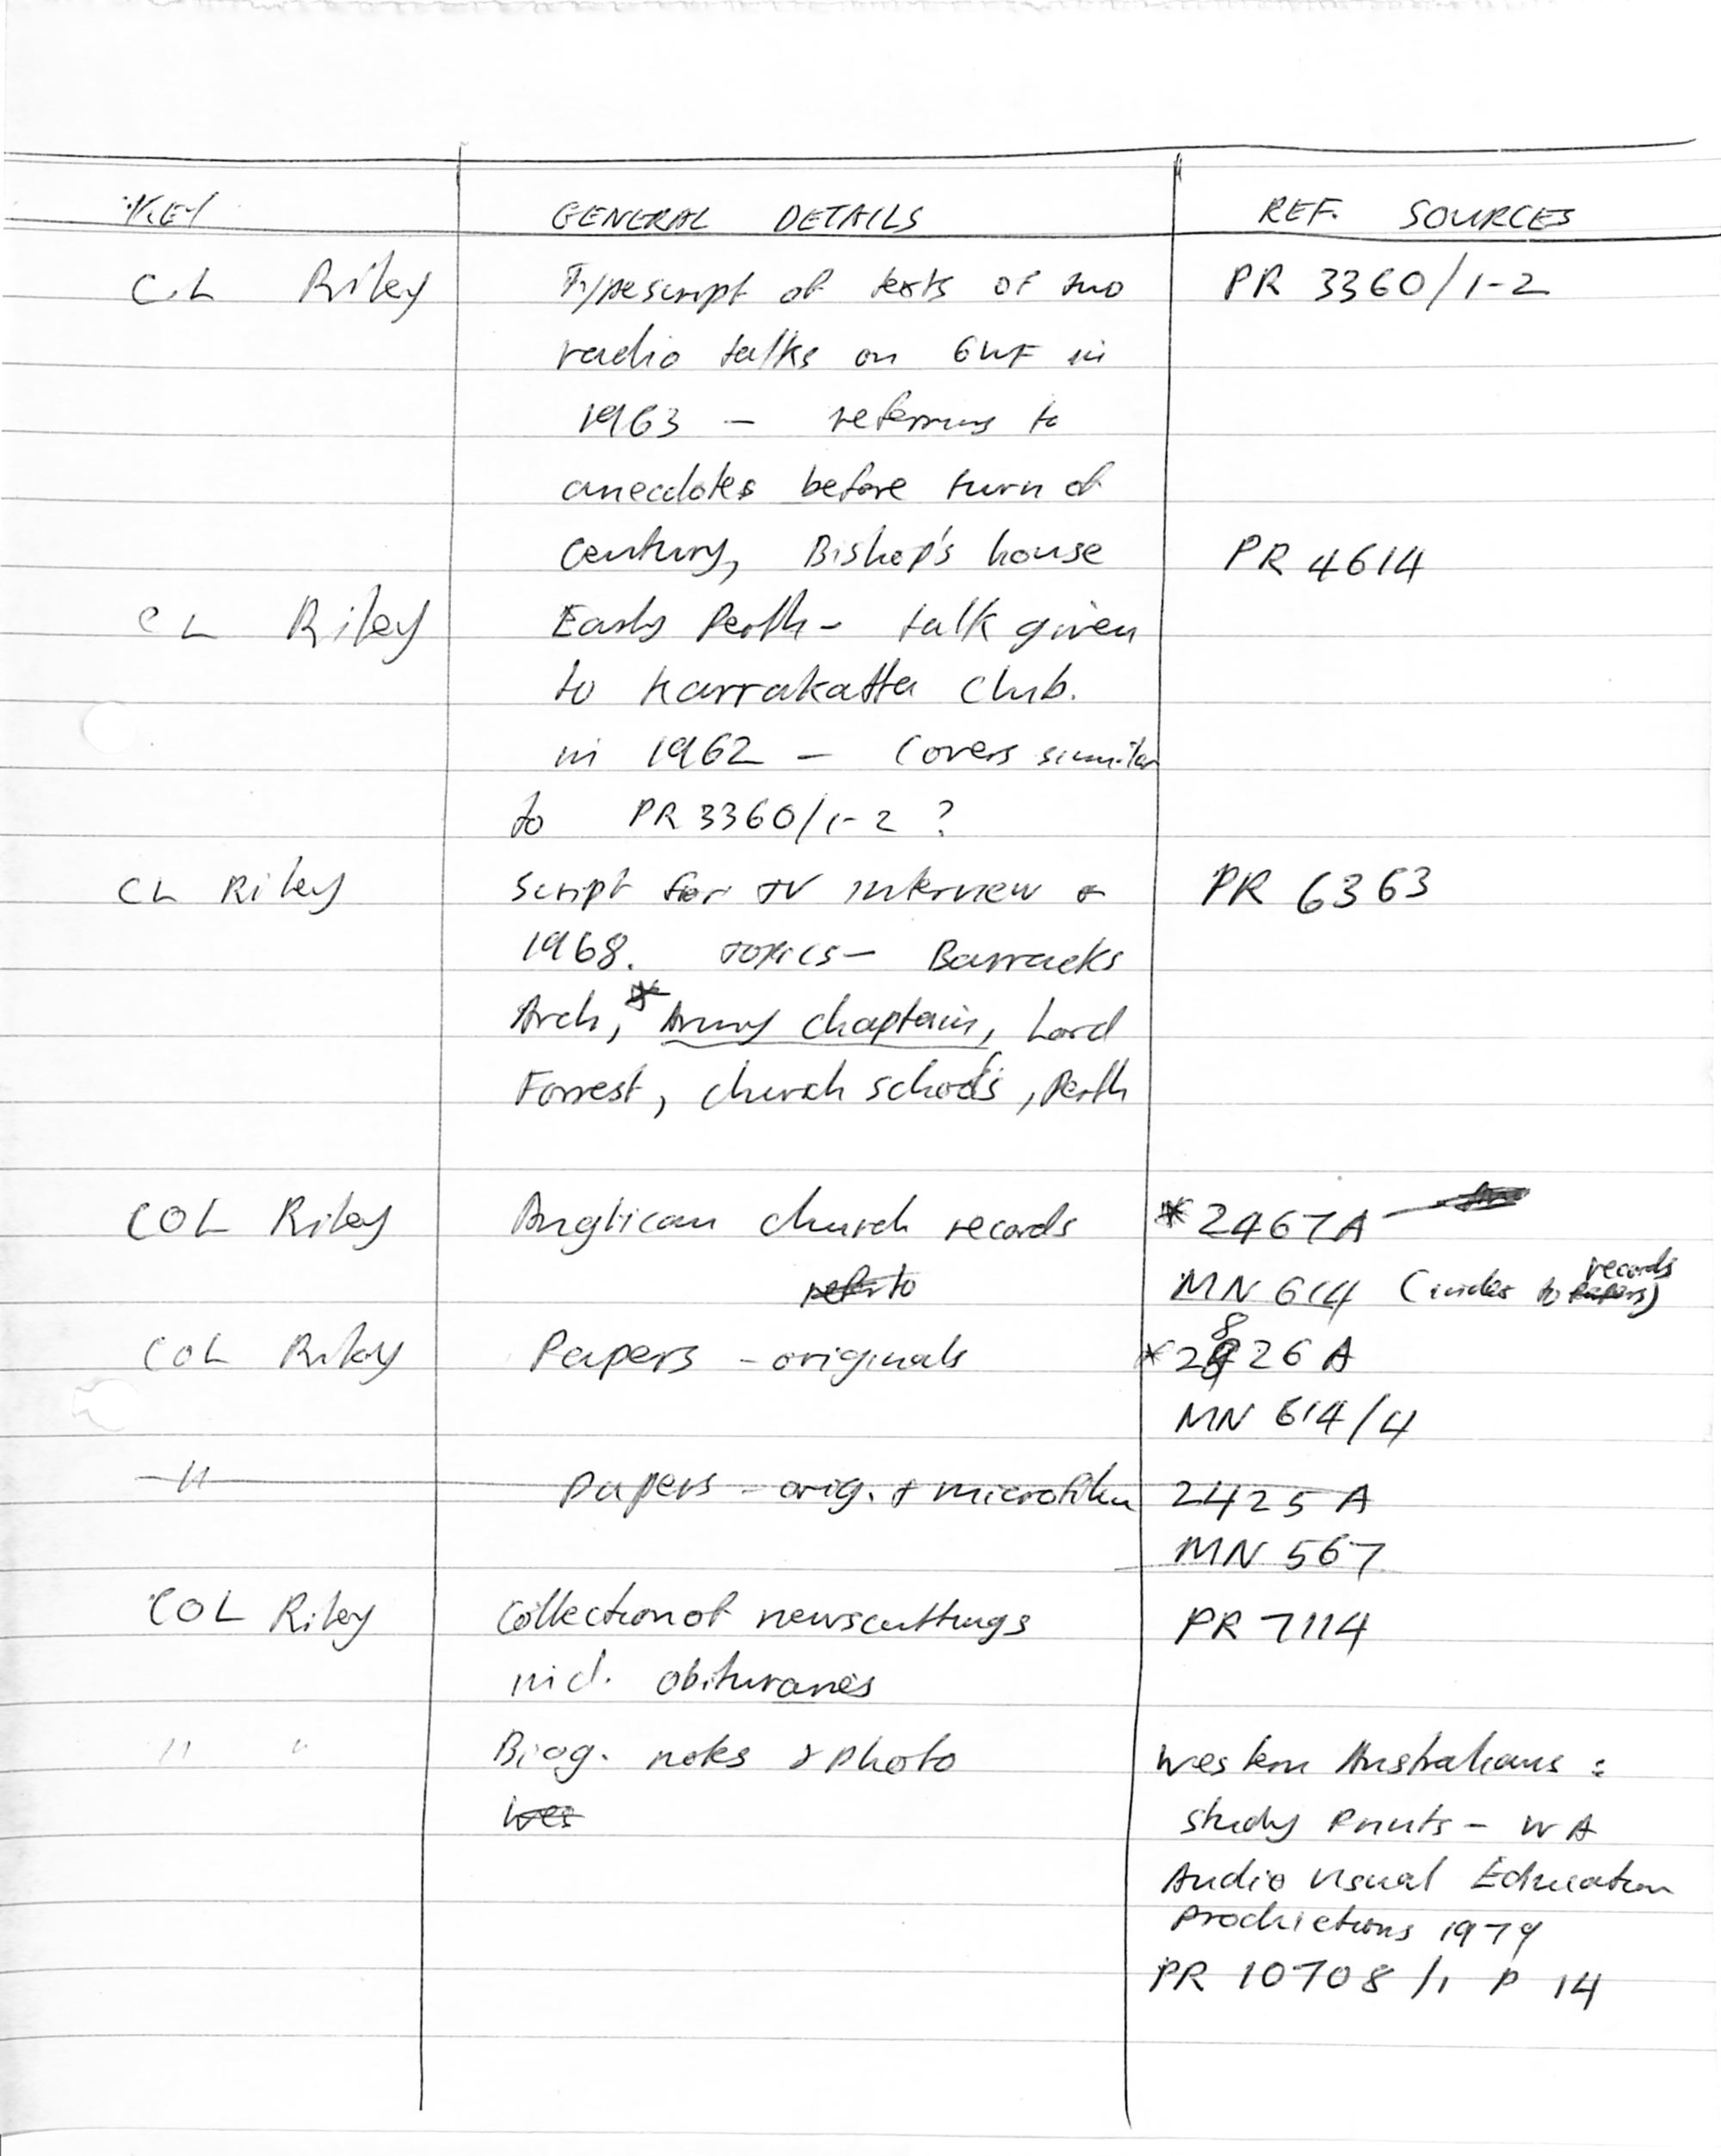 KEY GENERAL DETAILS REF. SOURCES
C.L Riley Typescript of texts of two PR 3360/1-2
radio talks on 6WF in
1963 - referring to
anecdotes before turn of
century, Bishop's house PR 4614
CL Riley Early Perth - talk given
to Karrakatta Club.
in 1962 - covers similar
to PR 3360/1-2 ?
CL Riley Script for TV interview + PR 6363
1968. TOPICS - Barracks
Arch, * Army chaptain, Lord
Forrest, church schools, Perth
COL Riley Anglican church records * 2467A
refer to MN 614 (index to records papers)
COL Riley Papers - originals * 2826A
MN 614/4
-11- Papers - orig. + microfilm 2425 A
MN 567
COL Riley Collection of newscuttings PR 7114
incl. obituraries
" " Biog. notes & photo Western Australians :
wes study prints - WA
Audio Visual Education
Productions 1979
PR 10708/1 P 14